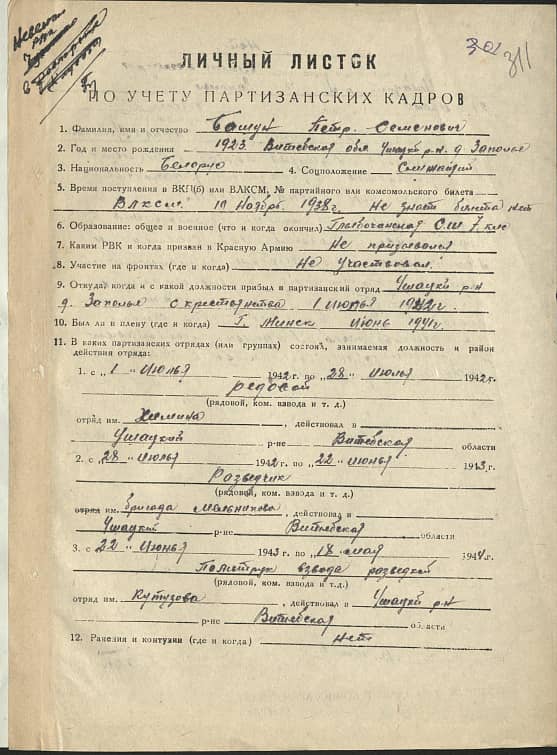 301
311
ЛИЧНЫЙ ЛИСТОК
ПО УЧЕТУ ПАРТИЗАНСКИХ КАДРОВ
1. Фамилия, имя и отчество Петр. Семенович
2. Год и место рождения 1923. Витебская обл Ушацки р.н. д Заполье
3. Национальность Белорус 4. Соцположение Служащий
5. Время поступления в ВКП(б) или ВЛКСМ, № партийного или комсомольского билета
Влксм. 10 Ноябр. 1938 г. Не знат билета нет
6. Образование: общее и военное (что и когда окончил) С.Ш. 7 кл
7. Каким РВК и когда призван в Красную Армию Не призывался
8. Участие на фронтах (где и когда) Не Участвовал.
9. Откуда, когда и с какой должности прибыл в партизанский отряд Ушацки р-н
д. Заполье с крестьянства 1 Июлья 1942 г.
10. Был ли в плену (где и когда) Г. Минск Июнь 1941 г.
11. В каких партизанских отрядах (или группах) состоял, занимаемая должность и район
действия отряда:
1. с „1" Июлья 1942 г. по „28" Июлья 1942 г.
редовой
(рядовой, ком. взвода и т. д.)
отряд им. , действовал в
Ушацкий р-не Витебская области
2. с „28" Июлья 1942 г. по „22" Июнья 1943 г.
Розведчик
(рядовой, ком. взвода и т. д.)
отряд им. бригада Мельникова, действовал в
Ушацкий р-не Витебская области
3. с „22" Июнья 1943 г. по „18" мая 1944 г.
Политрук взвода розведки
(рядовой, ком. взвода и т.д.)
отряд им. Кутузова, действовал в Ушацки р.н
р-не Витебская области
12. Ранения и контузии (где и когда) нет